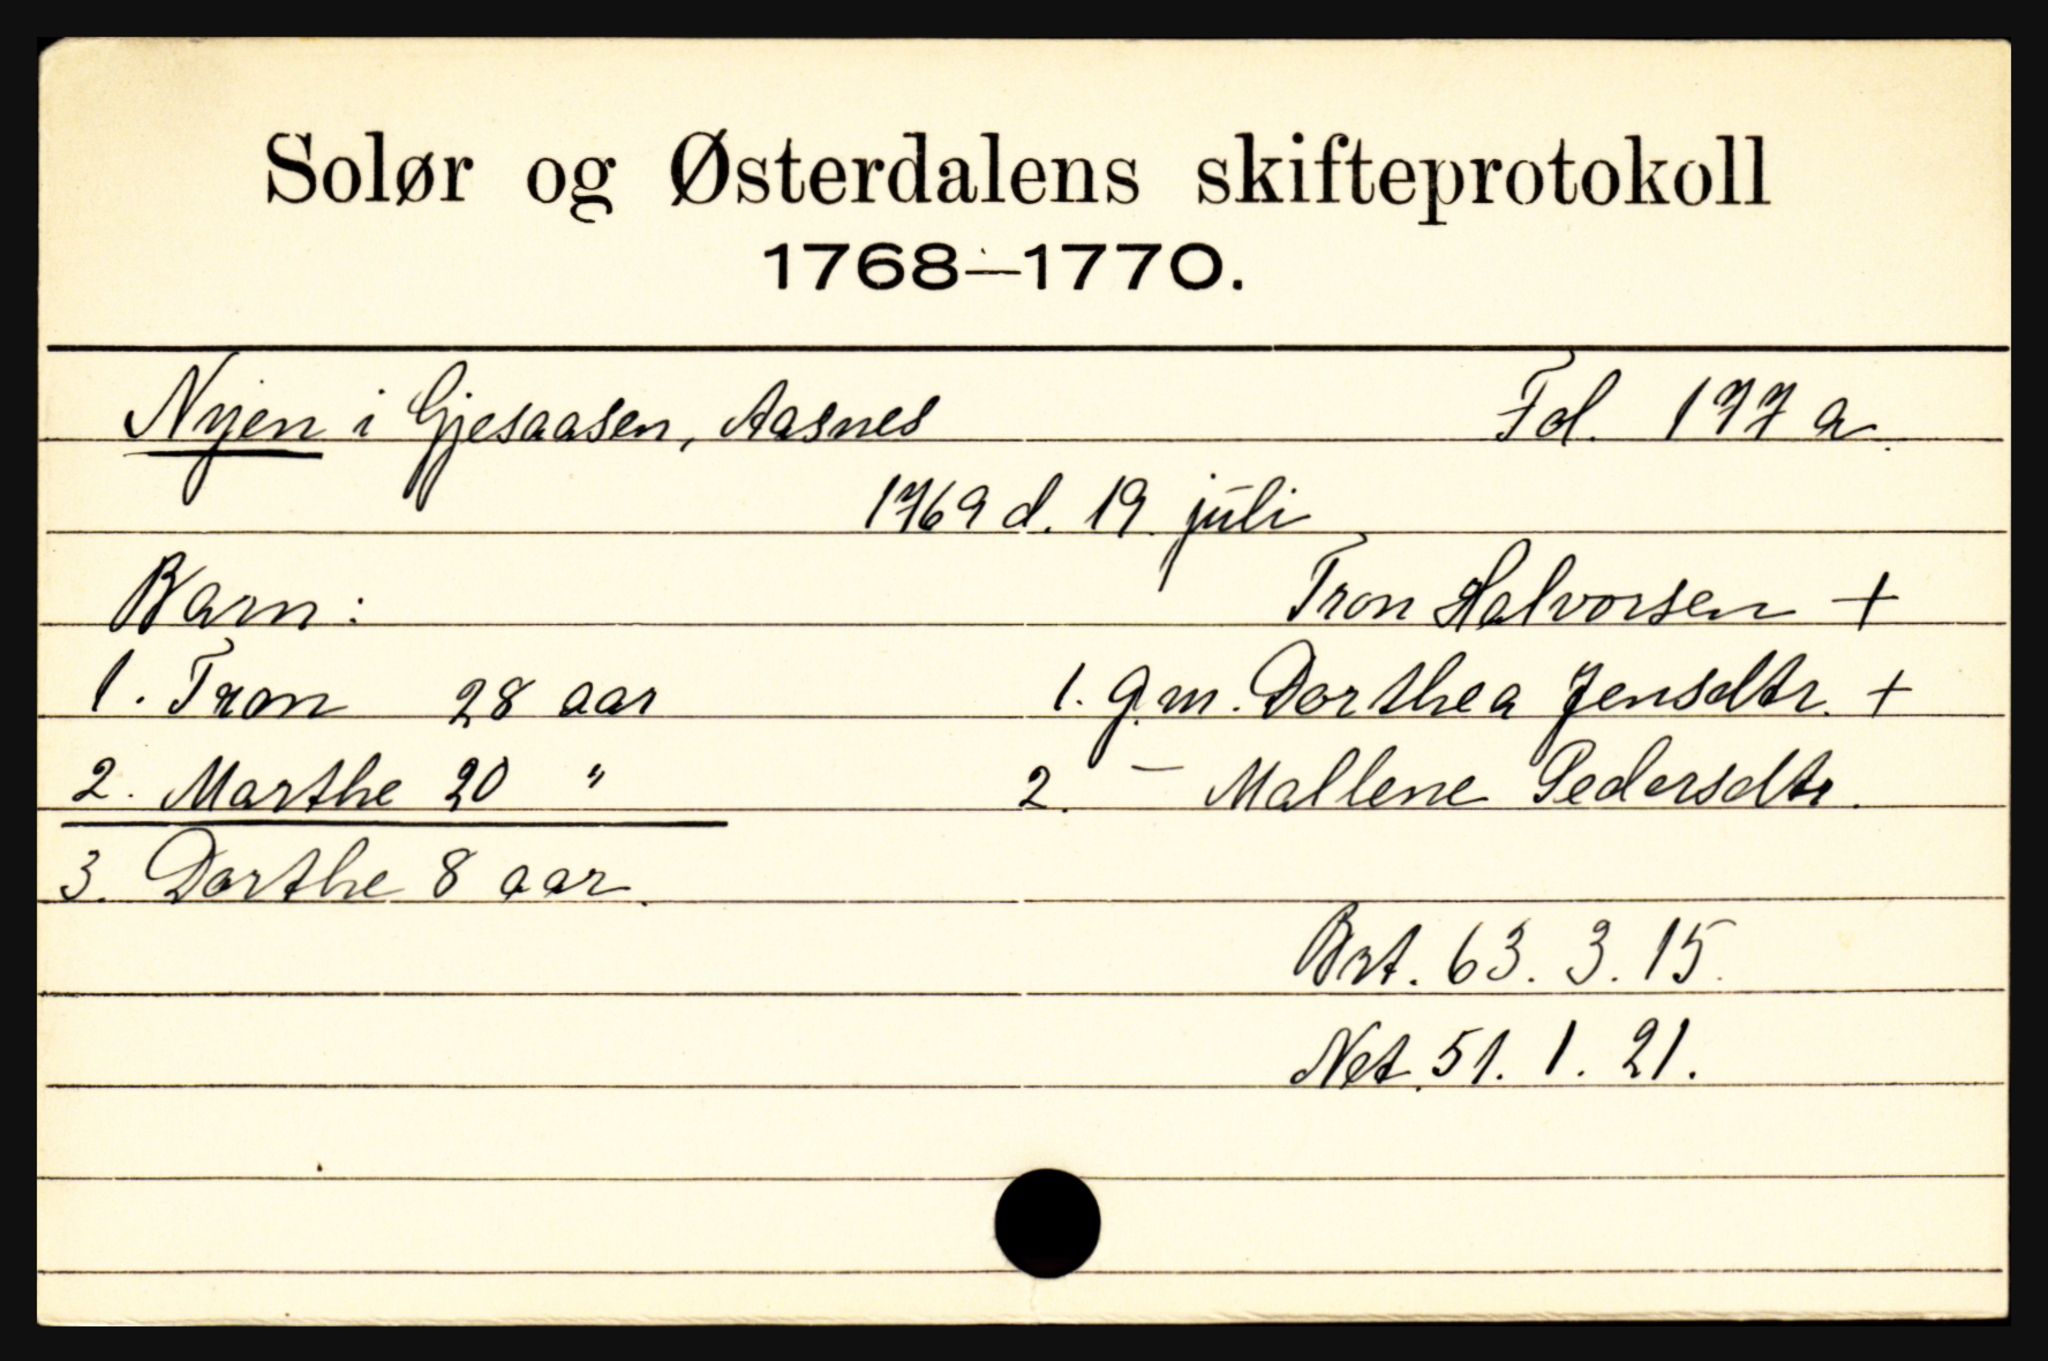 Solør og Østerdalens skifteprotokoll
1768—1770.
Nyen i Gjesaasen, Aasnes Fol. 177 a.
1769 d. 19. juli
Barn: Tron Halvorsen +
1. Tron 28 aar 1. g.m. Dorthea Jensdtr. +
2. Marthe 20 " 2. — Mallene Pedersdtr.
3. Dorthe 8 aar.
Brt. 63. 3. 15.
Net. 51. 1. 21.